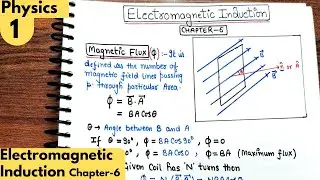 Physics
1
Electromagnetic Induction
CHAPTER-6
Magnetic Flux (ϕ) :- It is
defined as the number of
magnetic field lines passing
through particular Area.
ϕ = B⃗·A⃗
= BA Cosθ
θ → Angle between B and A
If θ=90°, ϕ = BA Cos90°, ϕ=0
ϕ=BA (Maximum flux)
given Coil has 'N' turns then
Electromagnetic
Induction Chapter-6